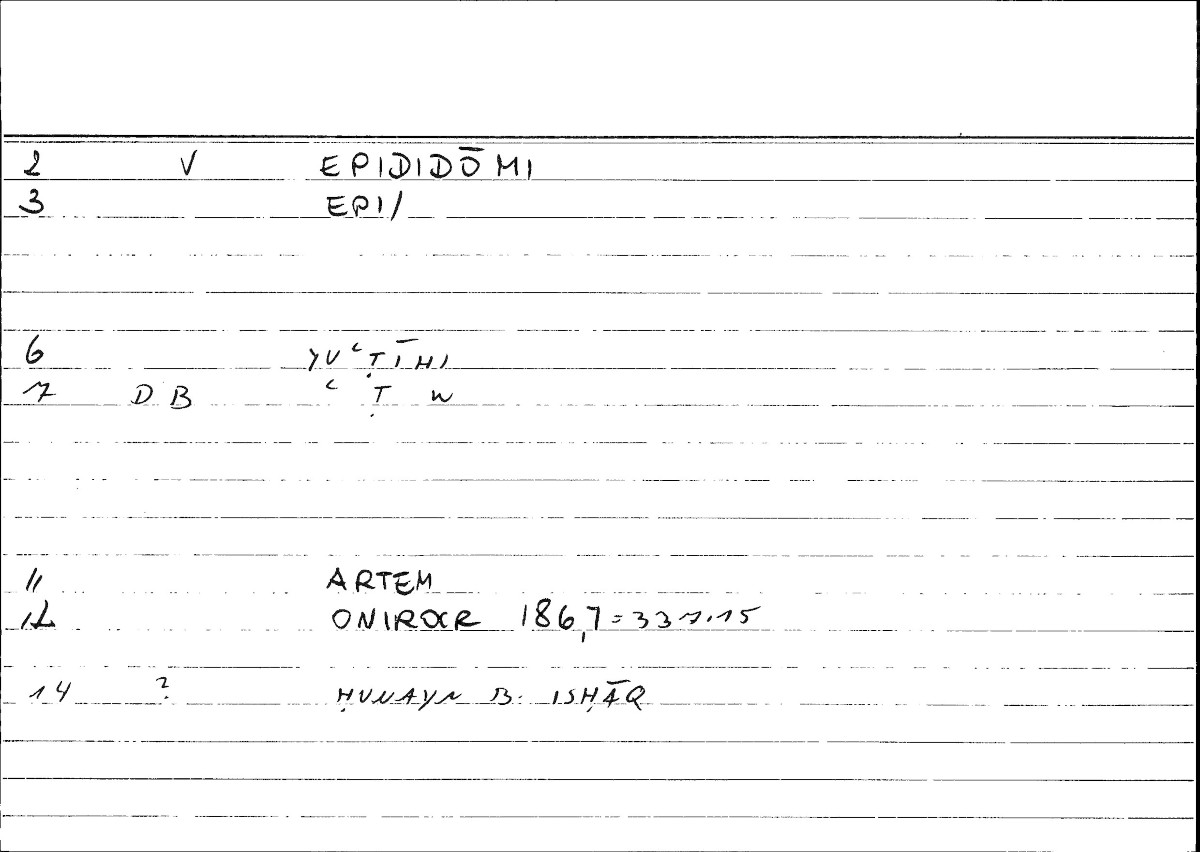 2 V EPIDIDŌMI
3 EPI/
6 YUʿṬĪHI
7 DB ʿ Ṭ W
11 ARTEM
12 ONIROCR 186,7=337.15
14 ? ḤUNAYN B. ISḤĀQ